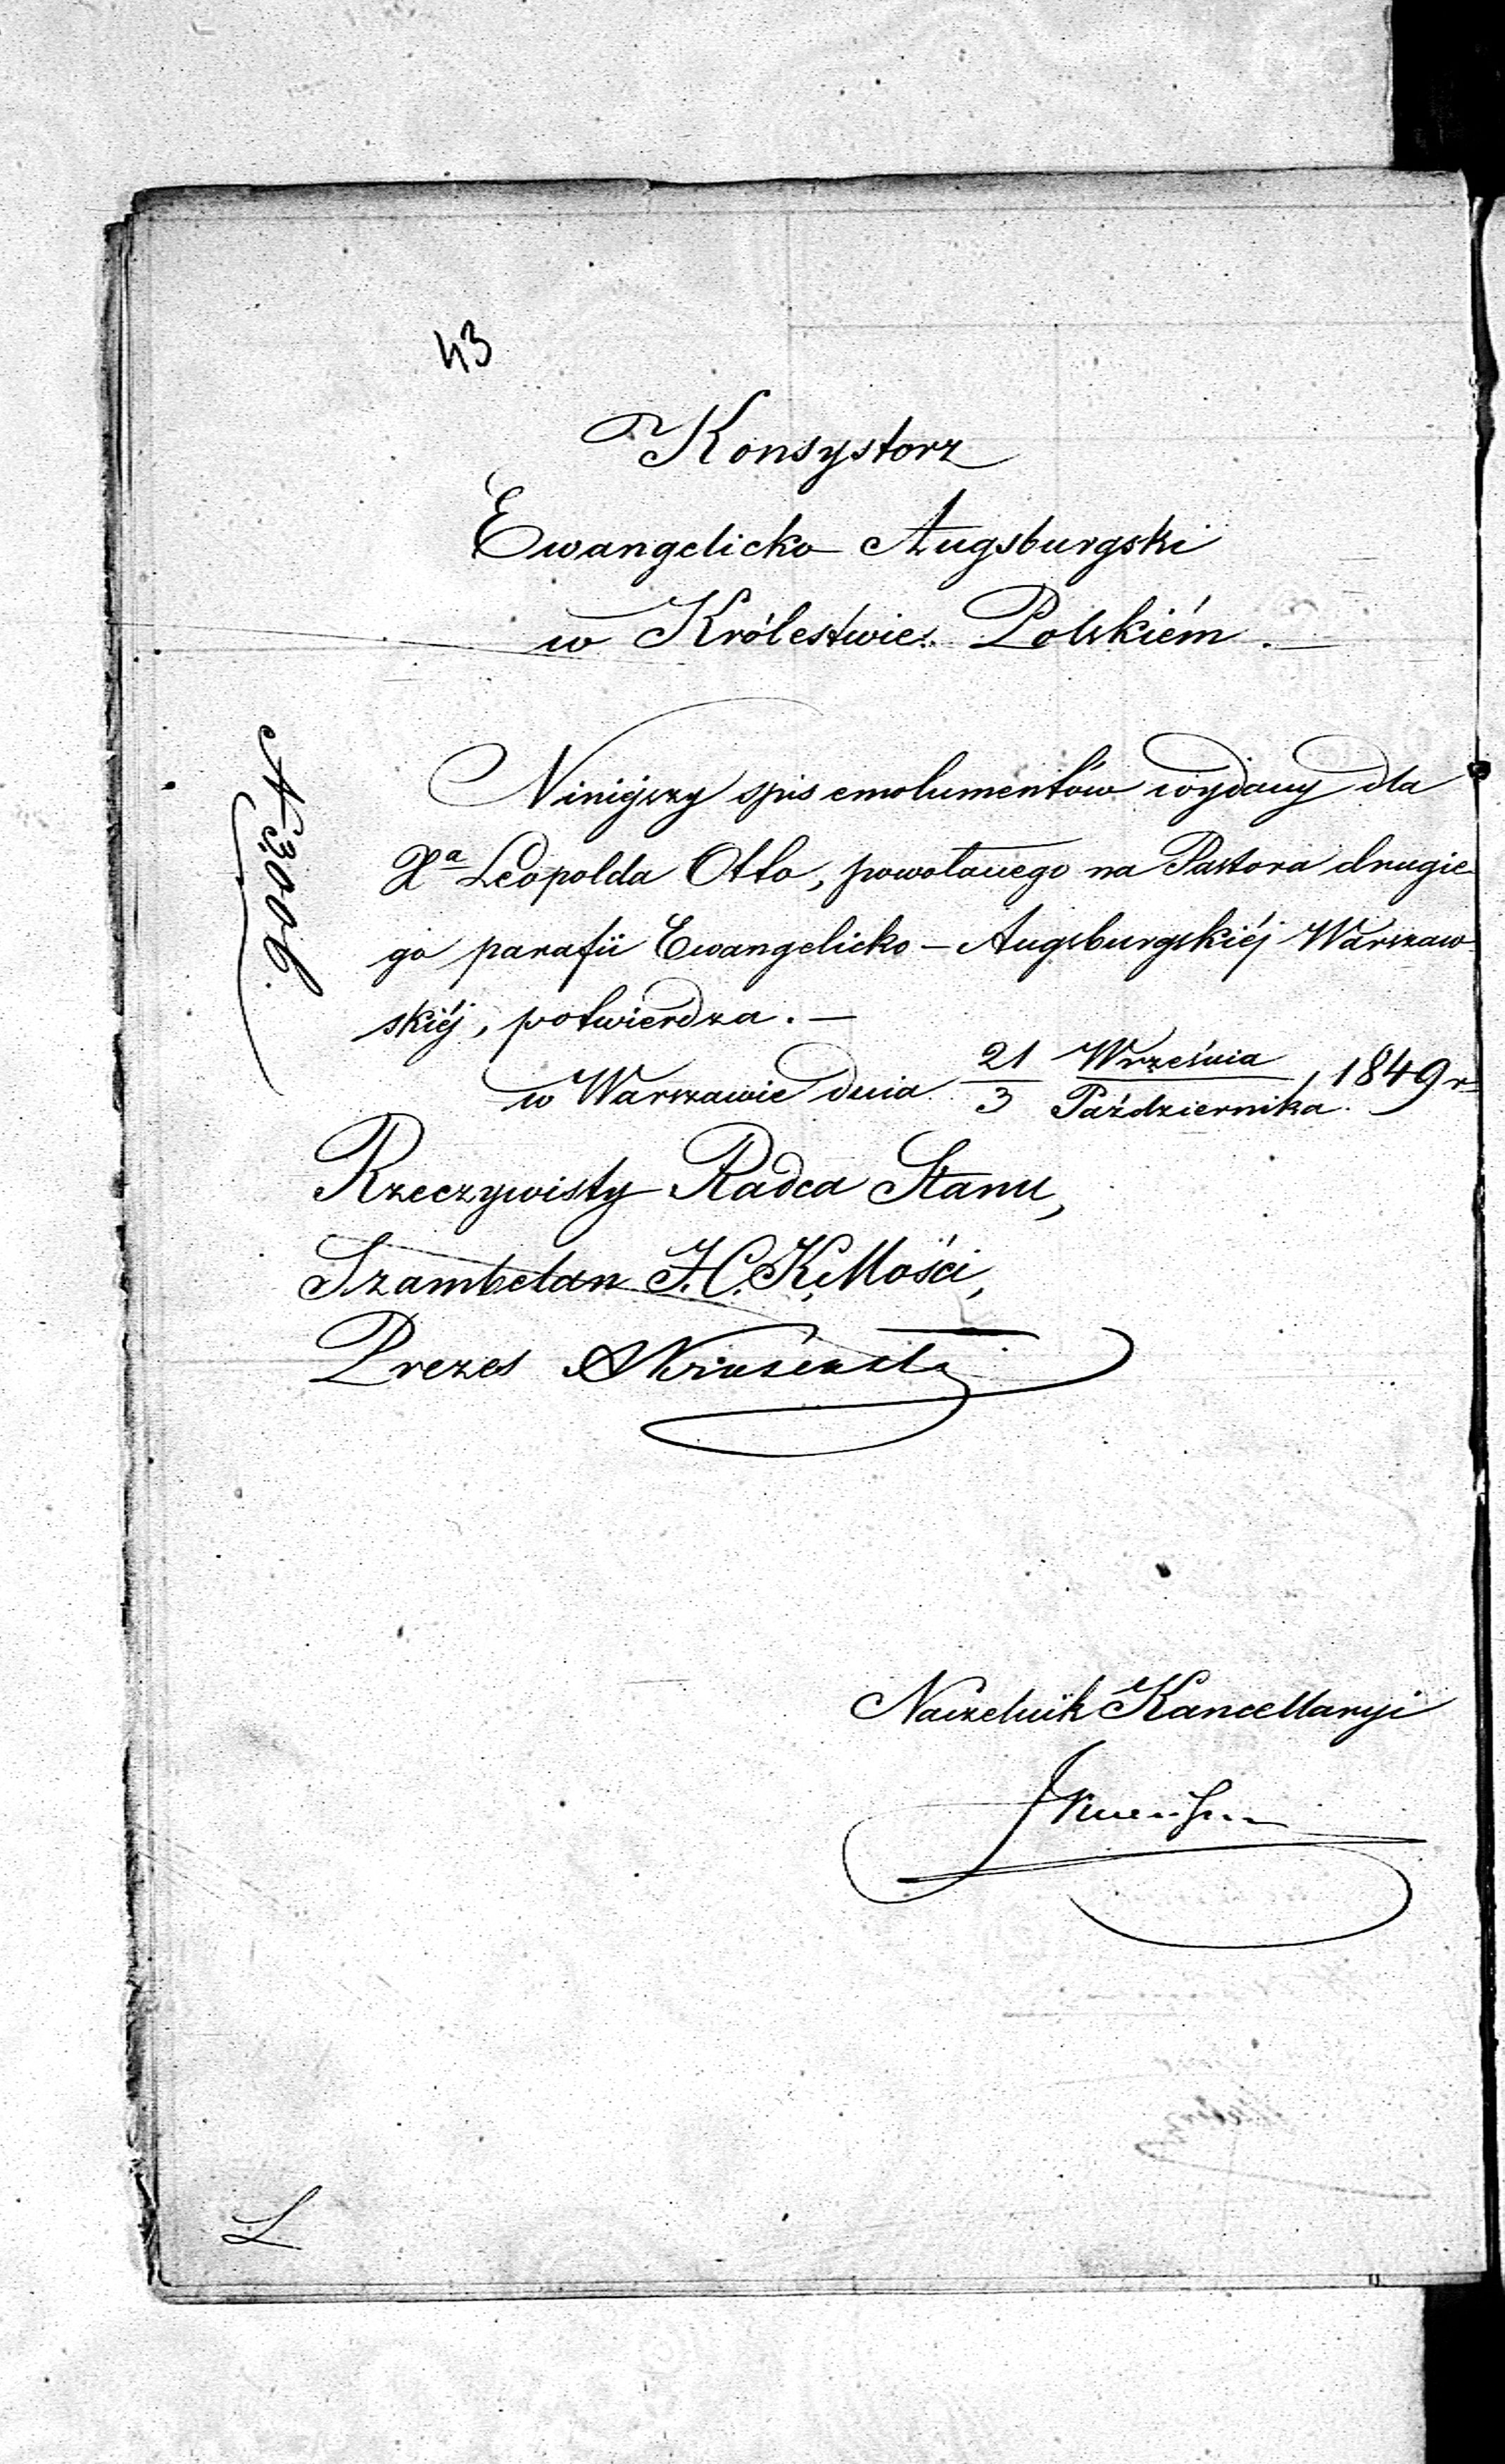 43
Konsystorz
Ewangelicko Augsburgski
w Królestwie Polskiém.
N 3006.
Niniejszy spis emolumentów wydany dla
Xa Leopolda Otto, powołanego na Pastora drugie
go parafii Ewangelicko - Augsburgskiéj Warszaw
skiéj, potwierdza. —
w Warszawie dnia 21/3 Września/Października 1849 r
Rzeczywisty Radca Stanu,
Szambelan J. C. K. Mości,
Prezes
Naczelnik Kancellaryi
L